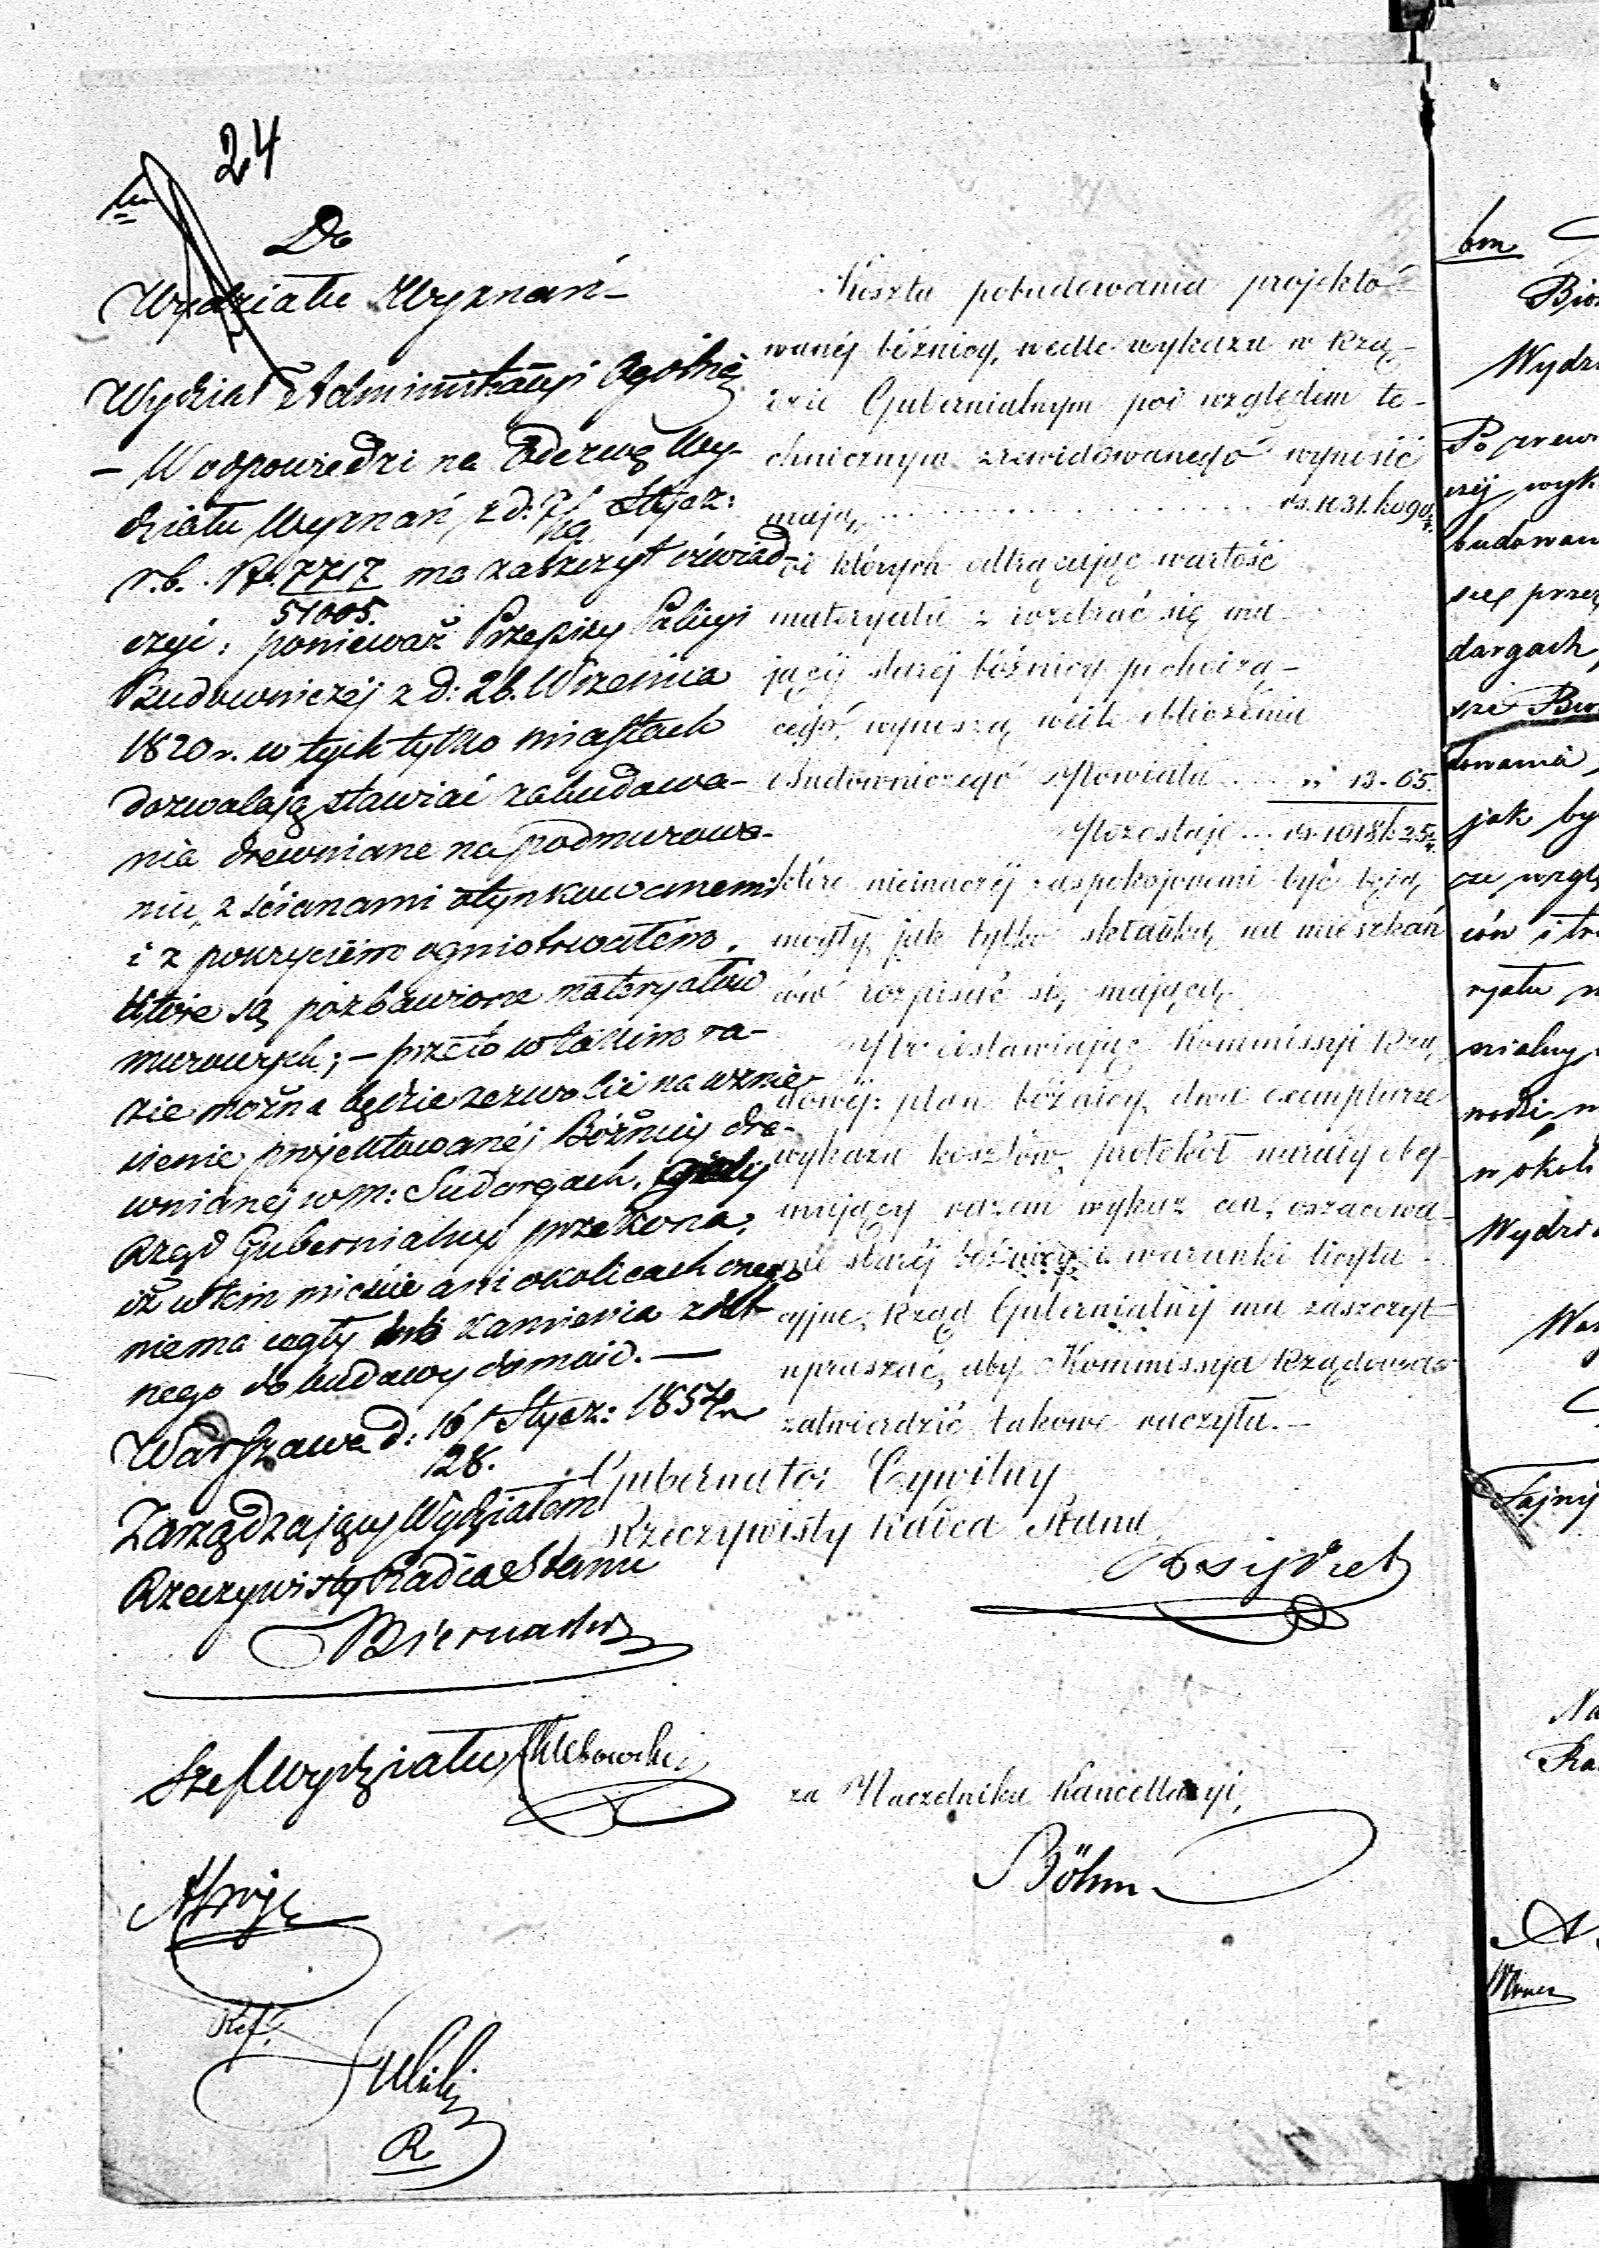 24
Do
Wydziału Wyznań
Wydział Administracyi Ogólnéj
– W odpowiedzi na Odezwę Wy-
działu Wyznań z d: Stycz:
r.b. Nr. 7717 ma zaszczyt oświad-
51005.
czyć: ponieważ Przepisy Policyi
Budowniczéj z d: 26. Września
1820 r. w tych tylko miastach
dozwalają stawiać zabudowa-
nia drewniane na podmurowa-
niu, z ścianami otynkowanemi
i z pokryciem ogniotrwałem,
które są pozbawione materyałów
murowych; – przeto w takim ra-
zie można będzie zezwolić na wznie-
sienie projektowanéj Bóżnicy dre-
wnianéj w m: Sudargach, gdy
Rząd Gubernialny przekona,
iż w tém mieście ani okolicach onego
niema cegły lub kamienia zdat-
nego do budowy domaić. —
Warszawa d: 16/ Stycz: 1857 r
28.
Zarządzający Wydziałem
Rzeczywisty Radca Stanu
Biernacki
Szef Wydziału
Ref.
R
Koszta pobudowania projekto-
wanéj bóżnicy, wedle wykazu w Rzą-
dzie Gubernialnym pod względem te-
chnicznym zrewidowanego wynosić
mają, . . . . . . . . . . rs. 1131. k. 90
od których odtrącając wartość
materyału z rozebrać się ma-
jącéj staréj bóżnicy pochodzą-
cego, wynoszą wedle obliczenia
Budowniczego Powiatu . . . " 13 - 65.
Pozostaje . . . rs. 1018 k. 25
które nieinaczéj zaspokojonemi być będą
mogły, jak tylko składką na mieszkań-
ców rozpisać się mającą.
Przedstawiając Kommissyi Rzą-
dowéj: plan bóżnicy, dwa exemplarze
wykazu kosztów, protokół narady obej-
mujący razem wykaz cen, oszacowa-
nie staréj bóżnicy i warunki licyta-
cyjne, Rząd Gubernialny ma zaszczyt
upraszać, aby Kommissya Rządowa
zatwierdzić takowe raczyła. –
Gubernator Cywilny
Rzeczywisty Radca Stanu
za Naczelnika Kancellaryi,
Böhm
bm
Wydzi
Po prze
éj wyk
budowan
się prze
dargach,
dowania,
jak by
ów i tr
ryału
nialny
w okol
Wydzi
Na
Ra